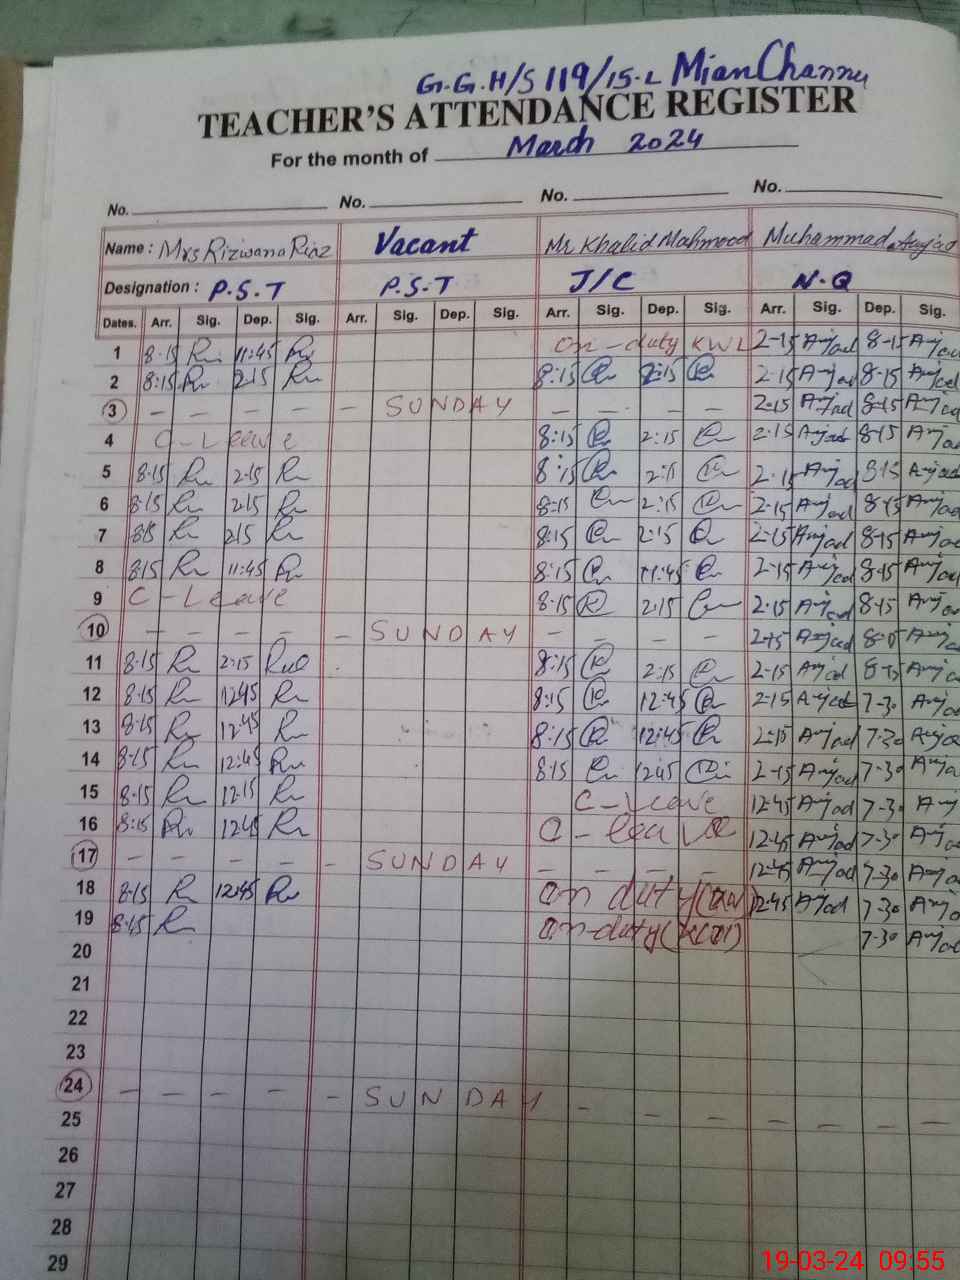 G.G.H/S 119/15-L Mian Channu
TEACHER'S ATTENDANCE REGISTER
For the month of March 2024
No. No. No. No.
Name : Mrs Rizwana Riaz Vacant Mr Khalid Mahmood Muhammad Amjad
Designation : P.S.T P.S.T J/C N.Q
Dates. Arr. Sig. Dep. Sig. Arr. Sig. Dep. Sig. Arr. Sig. Dep. Sig. Arr. Sig. Dep. Sig.
1 8-15 11:45 on-duty KWL 2-15 Amjad 8-15 Amjad
2 8:15 2:15 8:15 2:15 2-15 Amjad 8-15 Amjad
3 - - - - - SUNDAY - - - - 2-15 Amjad 8-15 Amjad
4 C-Leave 8:15 2:15 2-15 Amjad 8-15 Amjad
5 8-15 2-15 8:15 2:15 2-15 Amjad 8-15 Amjad
6 8-15 2:15 8:15 2:15 2-15 Amjad 8-15 Amjad
7 8:15 2:15 8:15 2:15 2-15 Amjad 8-15 Amjad
8 8:15 11:45 8:15 11:45 2-15 Amjad 8-15 Amjad
9 C-Leave 8:15 2:15 2-15 Amjad 8-15 Amjad
10 - - - - - SUNDAY - - - - 2-15 Amjad Amjad
11 8-15 2:15 8:15 2:15 2-15 Amjad 8-15 Amjad
12 8-15 12:45 8:15 12:45 2-15 Amjad 7-30 Amjad
13 8-15 12:45 8:15 12:45 2-15 Amjad 7-30 Amjad
14 8-15 12:45 8:15 12:45 2-15 Amjad 7-30 Amjad
15 8-15 12:15 C-Leave 12-45 Amjad 7-30 Amj
16 8:15 12:45 C-Leave 12-45 Amjad 7-30 Amjad
17 - - - - - SUNDAY - - - - 12-45 Amjad 7-30 Amjad
18 8-15 12:45 on duty 12-45 Amjad 7-30 Amjad
19 8-15 on-duty 7-30 Amjad
20
21
22
23
24 - - - - - SUNDAY - - - - - - - -
25
26
27
28
29
19-03-24 09:55